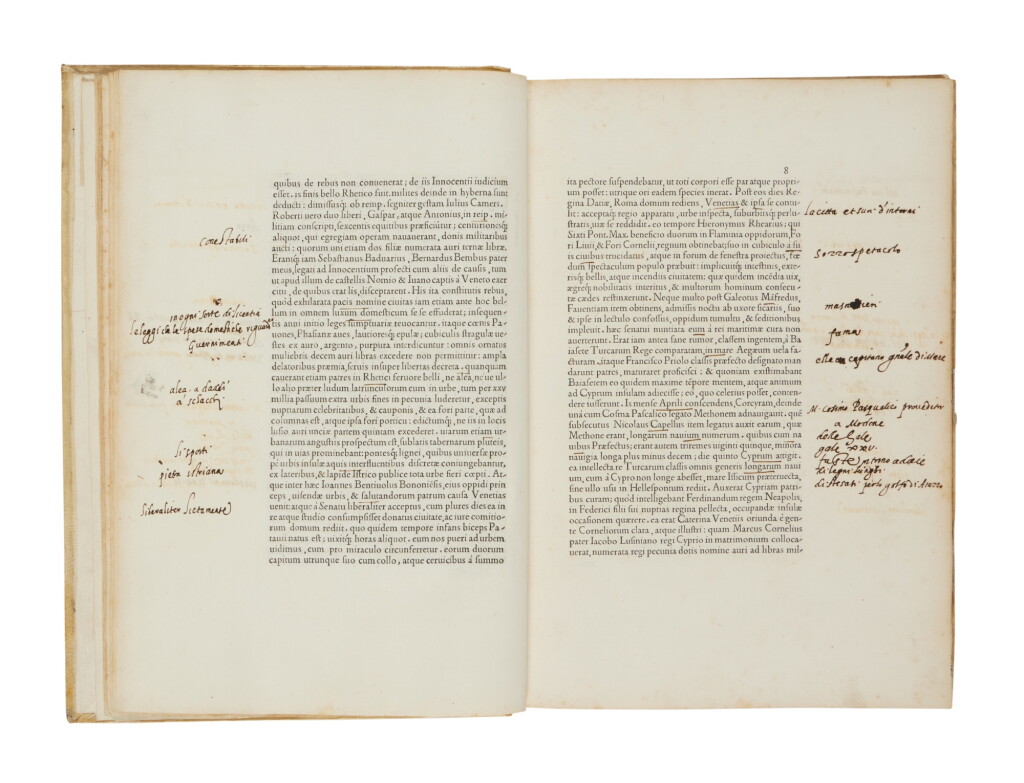 quibus de rebus non conuenerat; de iis Innocentii iudicium
esset. is finis bello Rhenco fuit. milites deinde in hyberna sunt
deducti: dimissusq; ob remp. segniter gestam Iulius Camers.
Roberti uero duo liberi, Gaspar, atque Antonius, in reip. mi-
litiam conscripti, sexcentis equitibus præficiuntur; centurionesq;
aliquot, qui egregiam operam nauauerant, donis militaribus
aucti: quorum uni etiam dos filiæ numerata auri ternæ libræ.
Erantq; iam Sebastianus Baduarius, Bernardus Bembus pater
meus, legati ad Innocentium profecti cum aliis de causis, tum
ut apud illum de castellis Nomio & Iuano captis à Veneto exer
citu, de quibus erat lis, disceptarent. His ita constitutis rebus,
quòd exhilarata pacis nomine ciuitas iam etiam ante hoc bel-
lum in omnem luxum domesticum se se effuderat; insequen-
tis anni initio leges sumptuariæ reuocantur. itaque cœnis Pa-
uones, Phasianæ aues, lautioresq; epulæ; cubiculis stragulæ ue-
stes ex auro, argento, purpura interdicuntur: omnis ornatus
muliebris decem auri libras excedere non permittitur: ampla
delatoribus præmia, seruis insuper libertas decreta. quanquam
cauerant etiam patres in Rhenci feruore belli, ne alea, ne ul-
lo alio præter ludum latrunculorum cum in urbe, tum per xxv
millia passuum extra urbis fines in pecunia luderetur, exceptis
nuptiarum celebritatibus, & cauponis, & ea fori parte, quæ ad
columnas est, atque ipsa fori porticu: edictumq;, ne iis in locis
lusio auri unciæ partem quintam excederet. uiarum etiam ur-
banarum angustiis prospectum est, sublatis tabernarum pluteis,
qui in uias prominebant: pontesq; lignei, quibus uniuersæ pro-
pè urbis insulæ aquis interfluentibus discretæ coniungebantur,
ex lateribus, & lapide Istrico publice tota urbe fieri cœpti. At-
que inter hæc Ioannes Bentiuolus Bononiẽsis, eius oppidi prin
ceps, uisendæ urbis, & salutandorum patrum causa Venetias
uenit: atque à Senatu liberaliter acceptus, cum plures dies ea in
re atque studio consumpsisset donatus ciuitate, ac iure comitio-
rum domum rediit. quo quidem tempore infans biceps Pa-
tauii natus est; uixitq; horas aliquot. eum nos pueri ad urbem
uidimus, cum pro miraculo circunferretur. eorum duorum
capitum utrunque suo cum collo, atque ceruicibus à summo
Conestabili
in ogni sorte di licentia
Guernimenti
alea. a dadi
à scacchi
pietra istriana
liberaliter
8
ita pectore suspendebatur, ut toti corpori esse par atque propri-
um posset: utrique ori eadem species inerat. Post eos dies Re-
gina Daciæ, Roma domum rediens, Venetias & ipsa se contu-
lit: acceptaq; regio apparatu, urbe inspecta, suburbiisq; perlu-
stratis, uiæ se reddidit. eo tempore Hieronymus Rhearius; qui
Sixti Pont. Max. beneficio duorum in Flaminia oppidorum, Fo
ri Liuii, & Fori Cornelii, regnum obtinebat; suo in cubiculo a su
is ciuibus trucidatus, atque in forum de fenestra proiectus, fœ
dum spectaculum populo præbuit: implicuitq; intestinis, exte-
risq; bellis, atque incendiis ciuitatem: quæ quidem incẽdia uix,
ægreq; nobilitatis interitus, & multorum hominum consecu-
tæ cædes restinxerunt. Neque multo post Galeotus Mãfredus,
Fauentiam item obtinens, admissis noctu ab uxore sicariis, suo
& ipse in lectulo confossus, oppidum tumultu, & seditionibus
impleuit. hæc senatui nuntiata eum à rei maritimæ cura non
auerterunt. Erat iam antea sane rumor, classem ingentem, à Ba
iasete Turcarum Rege comparatam, in mare Aegæum uela fa-
cturam. itaque Francisco Priolo classis præfecto designato man
darunt patres, maturaret proficisci: & quoniam existimabant
Baiasetem eo quidem maxime tẽpore mentem, atque animum
ad Cyprum insulam adiecisse; eo, quo celerius posset, conten-
dere iusserunt. Is mense Aprili conscendens, Corcyram, deinde
unà cum Cosma Pascalico legato Methonem adnauigauit. quẽ
subsecutus Nicolaus Capellus item legatus auxit earum, quæ
Methone erant, longarum nauium numerum. quibus cum na
uibus Præfectus; erant autem triremes uiginti quinque, minora
nauigia longa plus minus decem; die quinto Cyprum attigit.
ea intellecta re Turcarum classis omnis generis longarum naui
um, cum à Cypro non longe abesset, mare Issicum præteruecta,
sine ullo usu in Hellespontum rediit. Auxerat Cypriam patri-
bus curam; quòd intelligebant Ferdinandum regem Neapolis,
in Federici filii sui nuptias regina pellecta, occupandæ insulæ
occasionem quærere. ea erat Caterina Venetiis oriunda è gen-
te Corneliorum clara, atque illustri: quam Marcus Cornelius
pater Iacobo Lusiniano regi Cyprio in matrimonium colloca-
uerat, numerata regi pecunia dotis nomine auri ad libras mil-
sozzo spetacolo
fama
M. Cosimo Pasqualici proueditor
a Modone